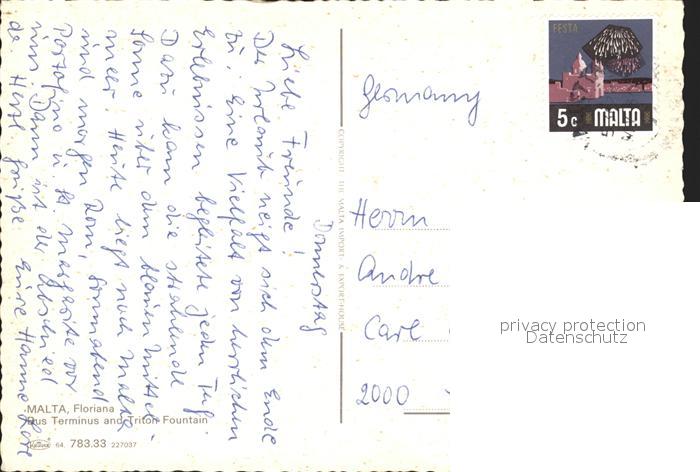 Donnerstag
Liebe Freunde!
Der Urlaub neigt sich dem Ende
zu. Eine Vielfalt von herrlichen
Erlebnissen begleitete jeden Tag.
Dazu kam die strahlende
Sonne über dem blauen Mittel-
meer. Heute liegt noch Malta
und morgen Rom, Sonnabend
Portofino u. St. Margarita vor
uns. Dann ist der Abschied
da. Herzl. Grüße Eure Hannelore
MALTA, Floriana
Bus Terminus and Triton Fountain
64. 783.33 227037
COPYRIGHT THE MALTA IMPORT- & EXPORT-HOUSE
FESTA
5c MALTA
Germany
Herrn
Andre
Carl
2000
privacy protection
Datenschutz